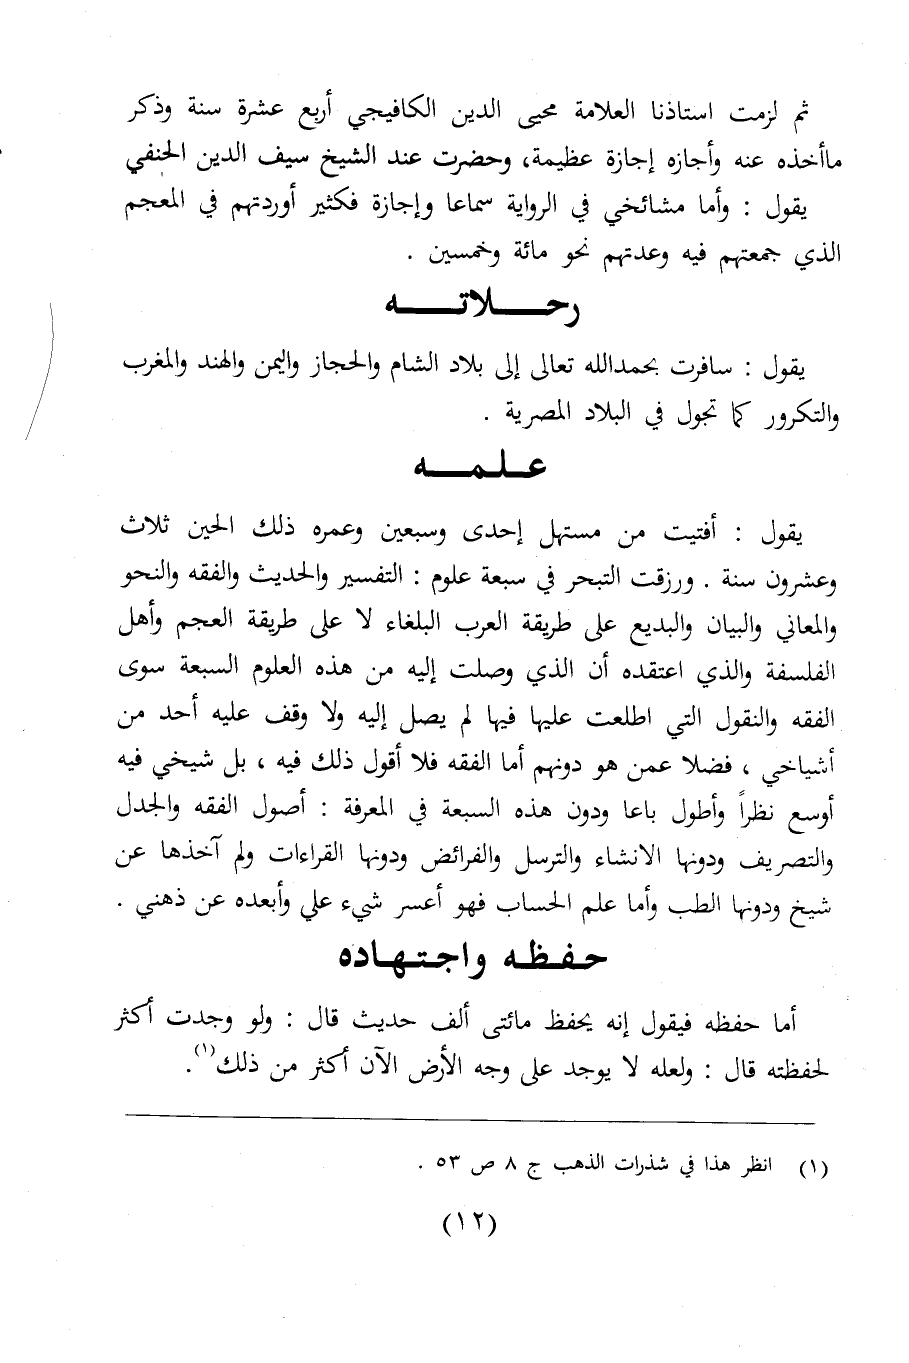 ثم لزمت استاذنا العلامة محيى الدين الكافيجي أربع عشرة سنة وذكر
ماأخذه عنه وأجازه إجازة عظيمة، وحضرت عند الشيخ سيف الدين الحنفي
يقول : وأما مشائخي في الرواية سماعا وإجازة فكثير أوردتهم في المعجم
الذي جمعتهم فيه وعدتهم نحو مائة وخمسين .
رحـــلاتـــه
يقول : سافرت بحمدالله تعالى إلى بلاد الشام والحجاز واليمن والهند والمغرب
والتكرور كما تجول في البلاد المصرية .
عـلـمـــه
يقول : أفتيت من مستهل إحدى وسبعين وعمره ذلك الحين ثلاث
وعشرون سنة . ورزقت التبحر في سبعة علوم : التفسير والحديث والفقه والنحو
والمعاني والبيان والبديع على طريقة العرب البلغاء لا على طريقة العجم وأهل
الفلسفة والذي اعتقده أن الذي وصلت إليه من هذه العلوم السبعة سوى
الفقه والنقول التي اطلعت عليها فيها لم يصل إليه ولا وقف عليه أحد من
أشياخي ، فضلا عمن هو دونهم أما الفقه فلا أقول ذلك فيه ، بل شيخي فيه
أوسع نظراً وأطول باعا ودون هذه السبعة في المعرفة : أصول الفقه والجدل
والتصريف ودونها الانشاء والترسل والفرائض ودونها القراءات ولم آخذها عن
شيخ ودونها الطب وأما علم الحساب فهو أعسر شيء علي وأبعده عن ذهني .
حـفـظـه واجـتـهـاده
أما حفظه فيقول إنه يحفظ مائتى ألف حديث قال : ولو وجدت أكثر
لحفظته قال : ولعله لا يوجد على وجه الأرض الآن أكثر من ذلك(١).
(١) انظر هذا في شذرات الذهب ج ٨ ص ٥٣ .
(١٢)